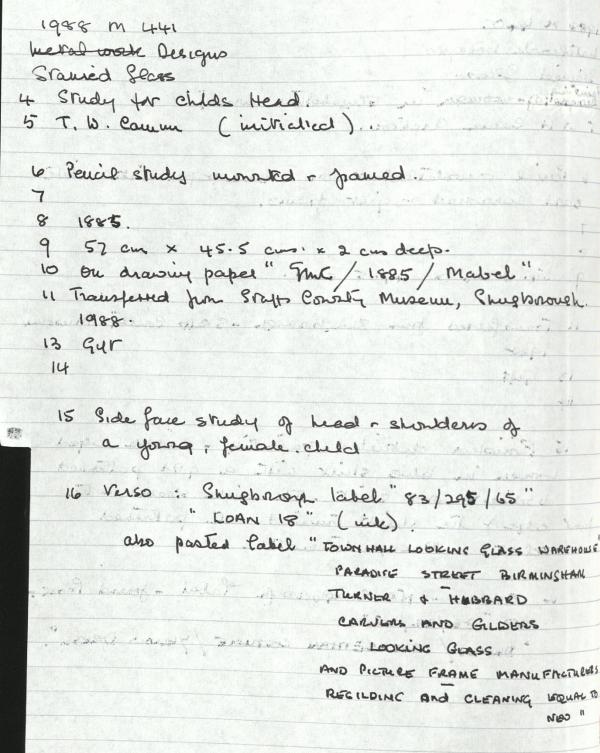 1988 M 441
Metal work Designs
Stained Glass
4 Study for childs Head.
5 T. W. Camm (initialled)..
6 Pencil study mounted & framed.
7
8 1885.
9 57 cm x 45.5 cms. x 2 cms deep.
10 On drawing paper " / 1885 / Mabel "
11 Transferred from Staffs County Museum, Shugborough.
1988.
13 Gift
14
15 Side face study of head & shoulders of
a young, female child
16 Verso : Shugborough label "83/295/65"
"LOAN 18" (ink).
also pasted label "TOWN HALL LOOKING GLASS WAREHOUSE
PARADISE STREET BIRMINGHAM
TURNER & HUBBARD
CARVERS AND GILDERS
LOOKING GLASS
AND PICTURE FRAME MANUFACTURERS
REGILDING AND CLEANING EQUAL TO
NEW "